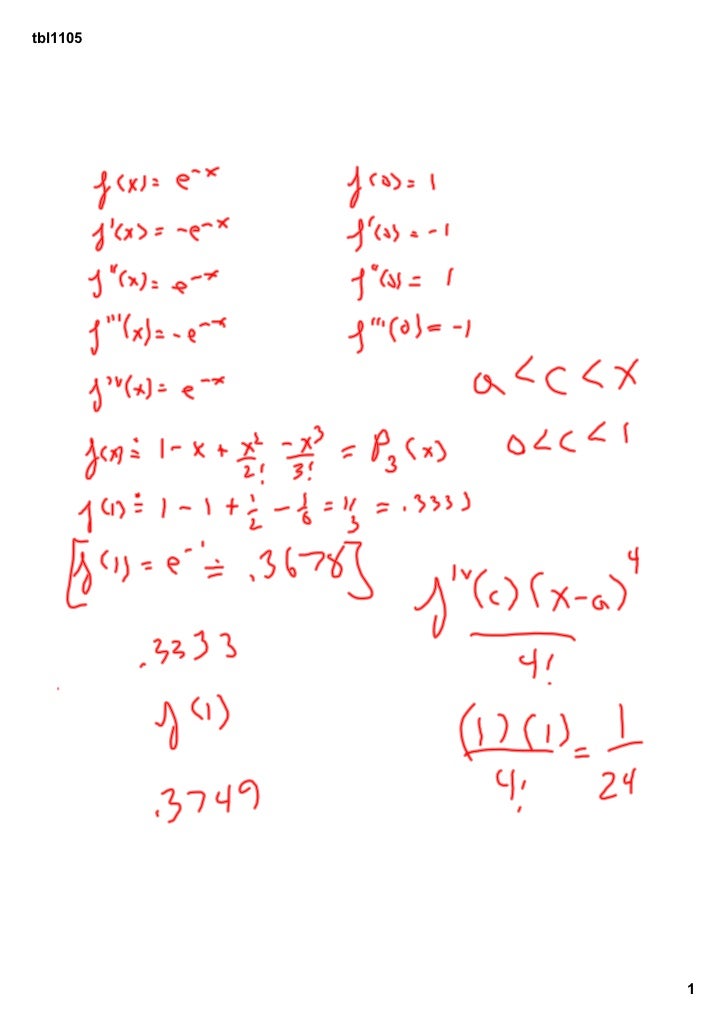 tbl1105
f(x) = e^-x f(0) = 1
f'(x) = -e^-x f'(0) = -1
f''(x) = e^-x f''(0) = 1
f'''(x) = -e^-x f'''(0) = -1
f^IV(x) = e^-x
a < c < x
f(x) ≐ 1 - x + x²/2! - x³/3! = P₃(x)
0 < c < 1
f(1) ≐ 1 - 1 + 1/2 - 1/6 = 1/3 = .3333
[f(1) = e^-1 ≐ .3678]
f^IV(c)(x-a)^4 / 4!
.3333
f(1)
(1)(1) / 4! = 1/24
.3749
1